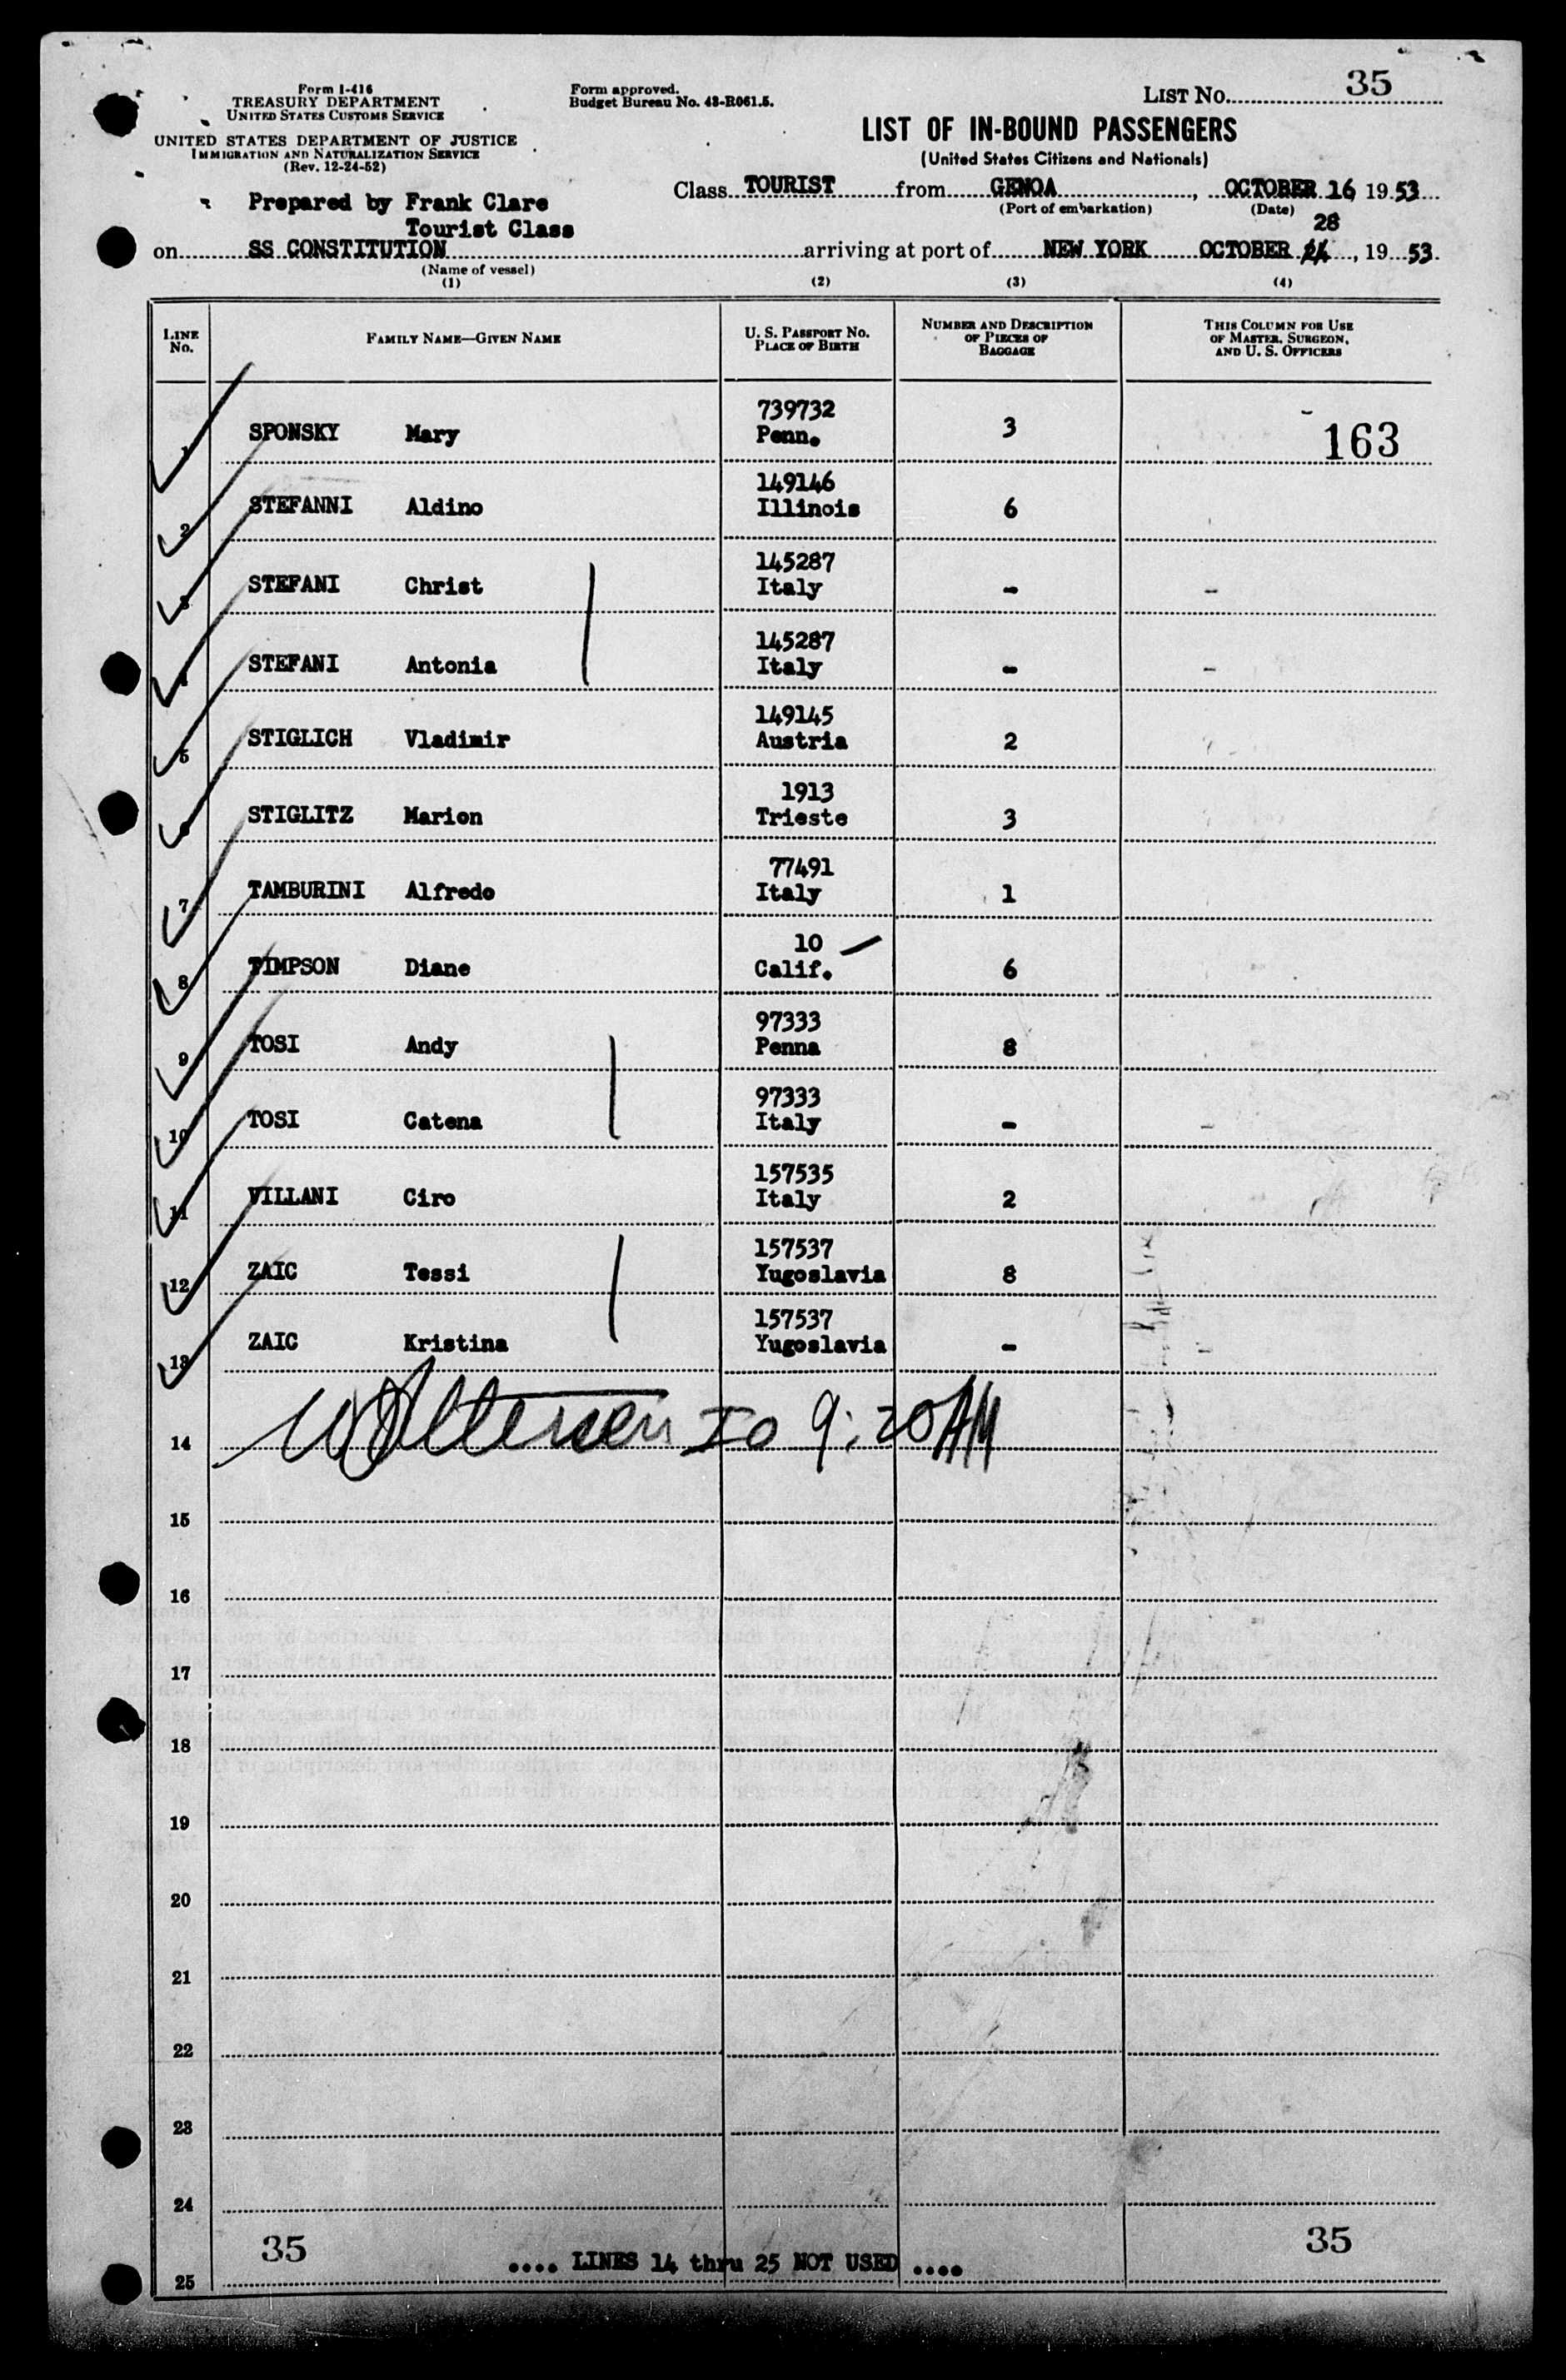 Form I-416
TREASURY DEPARTMENT
UNITED STATES CUSTOMS SERVICE
UNITED STATES DEPARTMENT OF JUSTICE
IMMIGRATION AND NATURALIZATION SERVICE
(Rev. 12-24-52)
Form approved.
Budget Bureau No. 43-R061.5.
LIST NO. 35
LIST OF IN-BOUND PASSENGERS
(United States Citizens and Nationals)
Class TOURIST from GENOA, OCTOBER 16, 1953
(Port of embarkation) (Date)
Prepared by Frank Clare
Tourist Class
28
on SS CONSTITUTION arriving at port of NEW YORK OCTOBER 24, 1953.
(Name of vessel)
(1) (2) (3) (4)
LINE NO. FAMILY NAME—GIVEN NAME U. S. PASSPORT NO. PLACE OF BIRTH NUMBER AND DESCRIPTION OF PIECES OF BAGGAGE THIS COLUMN FOR USE OF MASTER, SURGEON, AND U. S. OFFICERS
1 SPONSKY Mary 739732 Penn. 3 163
2 STEFANNI Aldino 149146 Illinois 6
3 STEFANI Christ 145287 Italy - -
4 STEFANI Antonia 145287 Italy - -
5 STIGLICH Vladimir 149145 Austria 2
6 STIGLITZ Marion 1913 Trieste 3
7 TAMBURINI Alfredo 77491 Italy 1
8 TIMPSON Diane 10 Calif. 6
9 TOSI Andy 97333 Penna 8
10 TOSI Catena 97333 Italy - -
11 VILLANI Ciro 157535 Italy 2
12 ZAIC Tessi 157537 Yugoslavia 8
13 ZAIC Kristina 157537 Yugoslavia - -
14 9:20 AM
15
16
17
18
19
20
21
22
23
24
35 35
25 .... LINES 14 thru 25 NOT USED ....